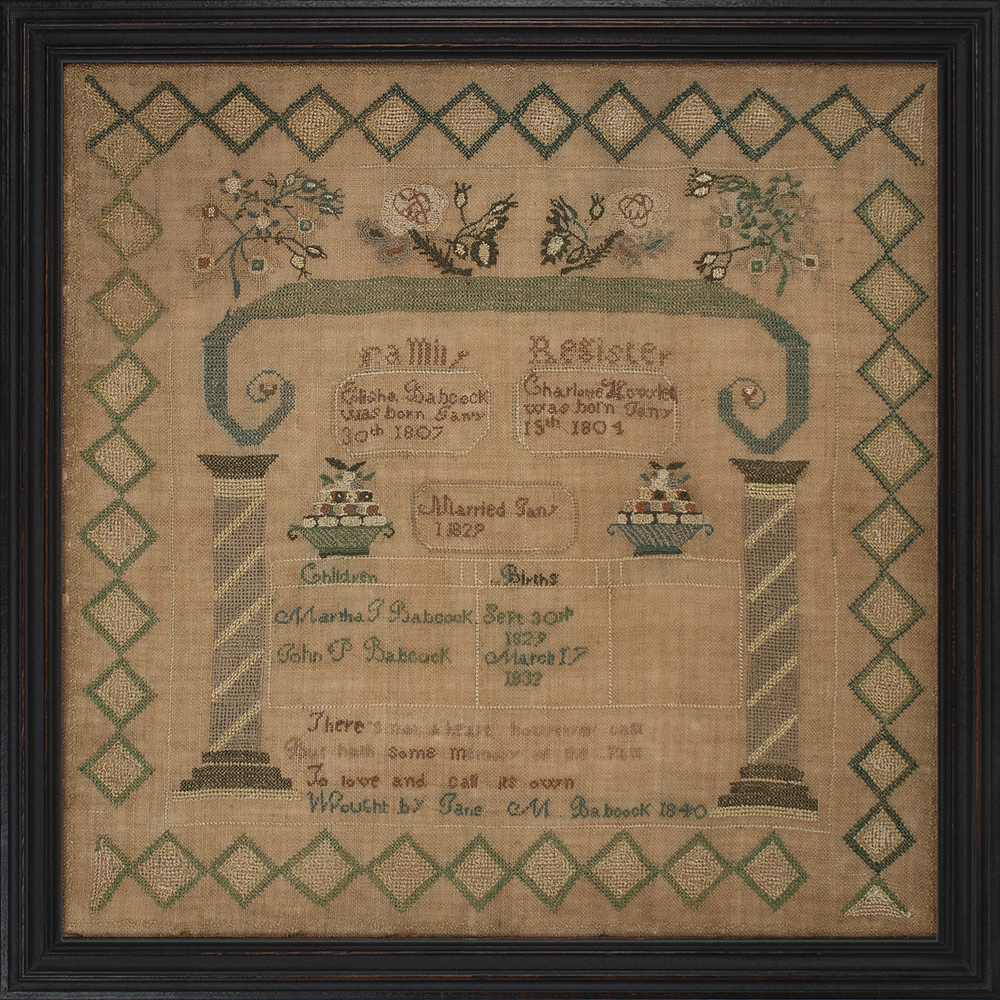 Family Register
Elisha Babcock
was born Jany
30th 1807
Charlotte Howlet
was born Jany
15th 1804
Married Jany
1829
Children Births
Martha J Babcock Sept 30th
1829
John P Babcock March 17
1832
There's not a heart however cast
But hath some Memory of the
To love and call its own
Wrought by Jane M Babcock 1840